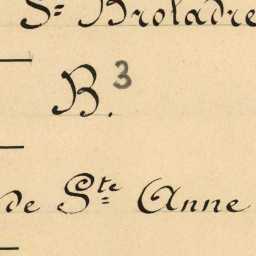 St Broladre
B. 3
de Ste Anne